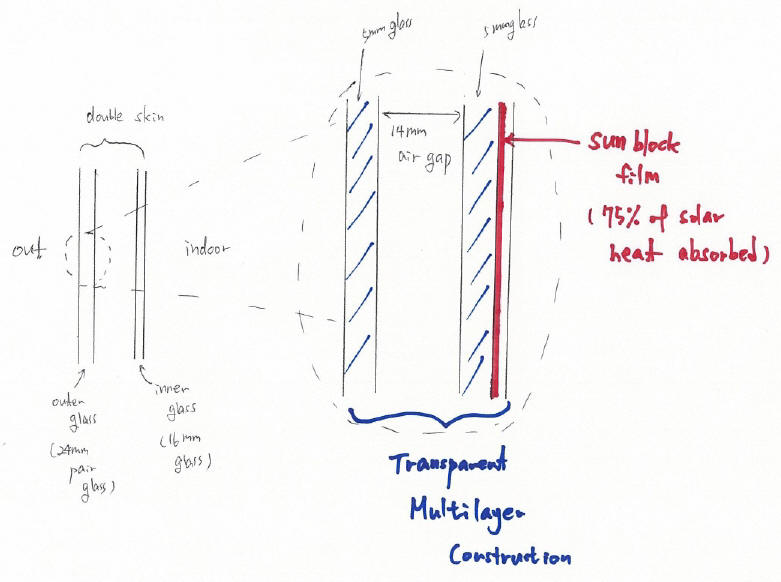 5mm glass
5mm glass
double skin
14mm
air gap
sun block
film
(75% of solar
heat absorbed)
out
indoor
outer
glass
(24mm
pair
glass)
inner
glass
(16mm
glass)
Transparent
Multilayer
Construction